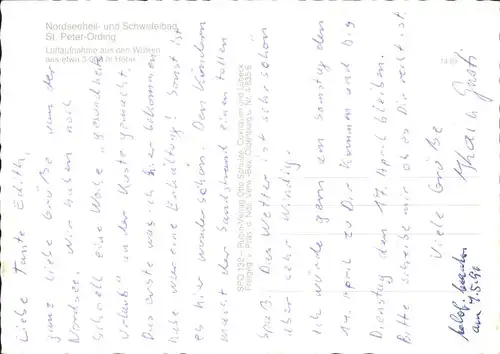 Nordseeheil- und Schwefelbad
St. Peter-Ording
Luftaufnahme aus den Wolken
aus etwa 3.000 m Höhe
Liebe Tante Edith,
ganz liebe Grüße von der
Nordsee. Wir haben noch
schnell eine Woche "gesundheits
urlaub" an der Küste gemacht.
Das erste was ich hier bekommen
habe war eine Erkältung! Sonst ist
es hier wunderschön. Den Kindern
macht der Sandstrand einen tollen
Spaß. Das Wetter ist sehr schön
aber sehr windig.
Ich würde gern am Samstag den
14. April zu Dir kommen und bis
Dienstag den 17. April bleiben.
Bitte schreibe mir ob es Dir recht ist.
Viele Grüße